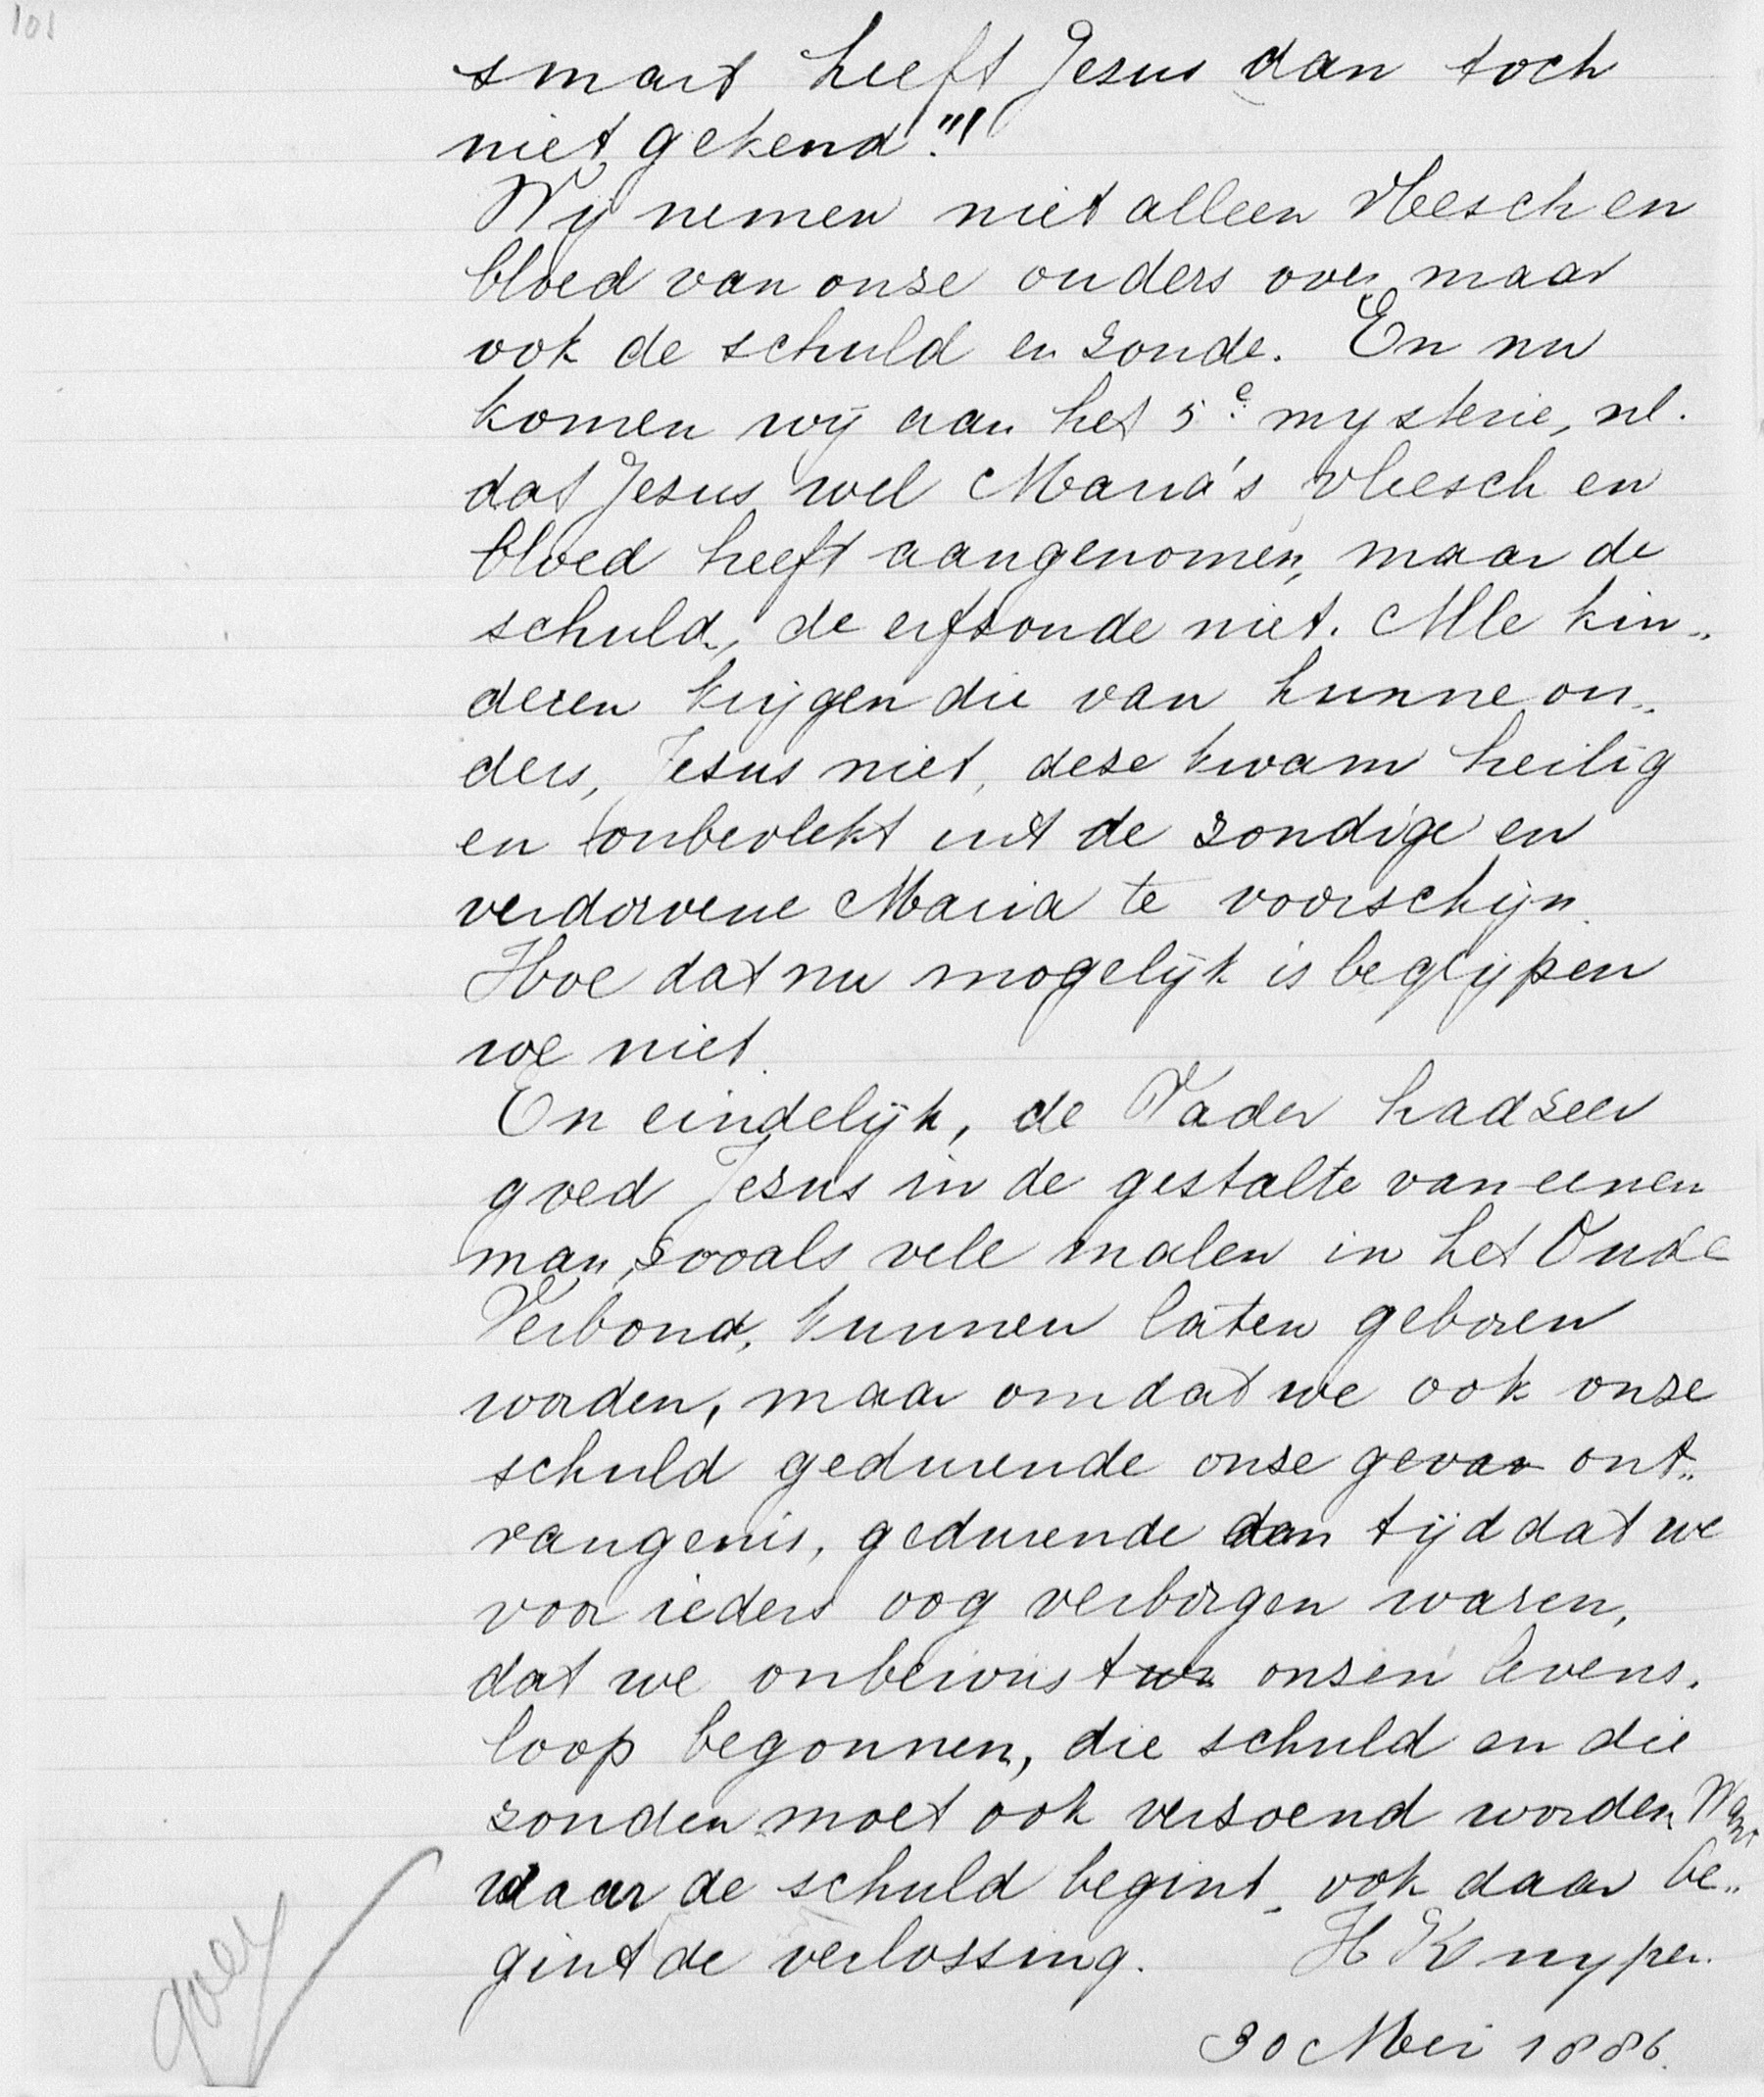 101
smart heeft Jesus dan toch
niet gekend."!
Wij nemen niet alleen vleesch en
bloed van onze ouders over maar
ook de schuld en zonde. En nu
komen wij aan het 5e mysterie, nl.
dat Jesus wel Maria's vleesch en
bloed heeft aangenomen, maar de
schuld, de erfzonde niet. Alle kin„
deren krijgen die van hunne ou„
ders, Jesus niet, deze kwam heilig
en onbevlekt uit de zondige en
verdorvene Maria te voorschijn.
Hoe dat nu mogelijk is begrijpen
we niet.
En eindelijk, de Vader had zeer
goed Jezus in de gestalte van eenen
man, zooals vele malen in het Oude
Verbond, kunnen laten geboren
worden, maar omdat we ook onze
schuld gedurende onze gevaa ont„
vangenis, gedurende den tijd dat we
voor ieders oog verborgen waren,
dat we onbewust wa onzen levens.
loop begonnen, die schuld en die
zonden moet ook verzoend worden. Want
waar de schuld begint, ook daar be„
gint de verlossing. H Kuyper.
30 Mei 1886.
goed